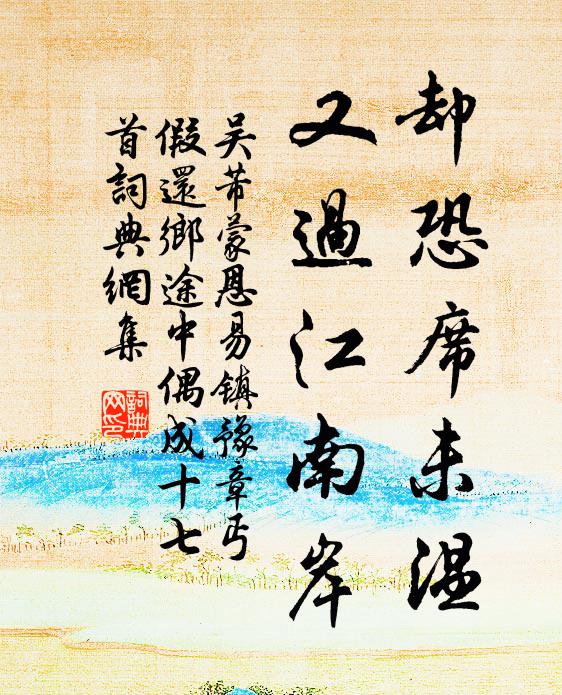 却恐席未温
又過江南岸
吴芾蒙恩易鎮豫章丐
假還鄉途中偶成十七
首詞典網集
詞典
网印